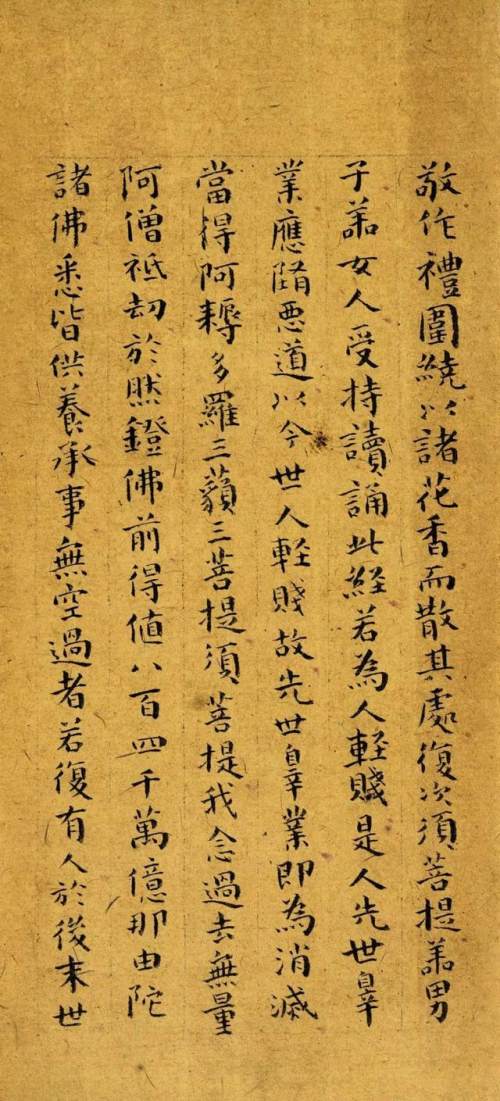 敬作禮圍繞以諸花香而散其處復次須菩提善男
子善女人受持讀誦此經若為人軽賤是人先世辠
業應墮悪道以今世人軽賤故先世辠業即為消滅
當得阿耨多羅三藐三菩提須菩提我念過去無量
阿僧祇劫於然鐙佛前得值八百四千萬億那由陀
諸佛悉皆供養承事無空過者若復有人於後末世